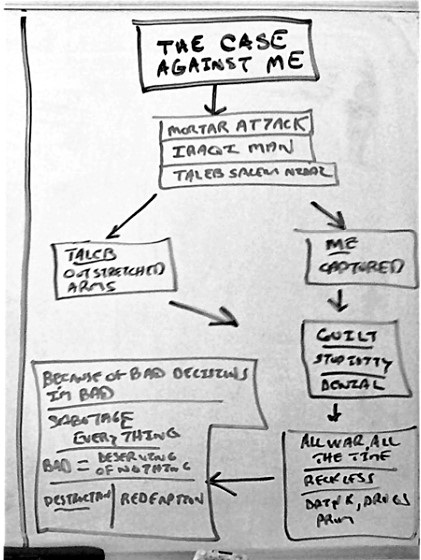 THE CASE
AGAINST ME
MORTAR ATTACK
IRAQI MAN
TALEB SALEM NIDAL
TALEB
OUTSTRETCHED
ARMS
ME
CAPTURED
GUILT
STUPIDITY
DENIAL
ALL WAR, ALL
THE TIME
RECKLESS
DRINK, DRUGS
BECAUSE OF BAD DECISIONS
I'M BAD
SABOTAGE
EVERYTHING
BAD = DESERVING
OF NOTHING
DESTRUCTION | REDEMPTION